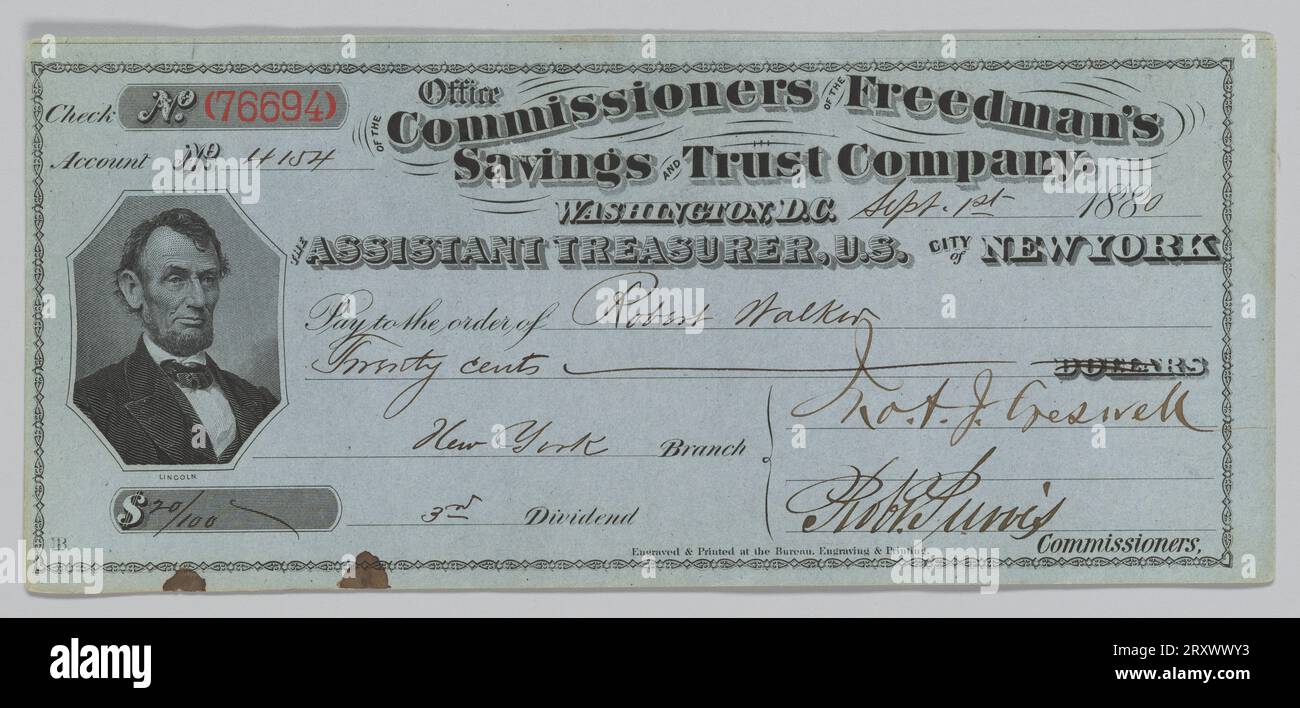 Check No. (76694)
Account No 4154
Office
OF THE Commissioners OF THE Freedman's
Savings AND Trust Company.
WASHINGTON, D.C. Sept. 1st 1880
THE ASSISTANT TREASURER, U.S. CITY of NEW YORK
Pay to the order of Robert Walker
Twenty cents DOLLARS
Jno. A. J. Creswell
New York Branch
LINCOLN
$ 20/100
3rd Dividend
Rob. Purvis
Commissioners,
Engraved & Printed at the Bureau, Engraving & Printing.
alamy
alamy
Image ID: 2RXWWY3
www.alamy.com